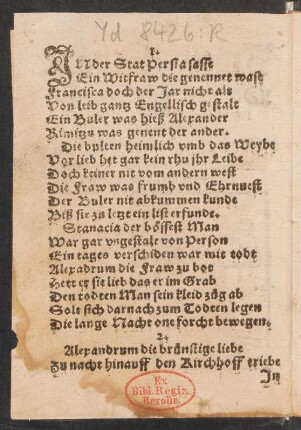 Yd 8426:R
1.
IN der Stat Persia sasse
Ein Witfraw die genennet wasz
Francisca doch der Jar nicht alt
Von leib gantz Engellisch gestalt
Ein Buler was hieß Alexander
Rinitzu was genent der ander.
Die bulten heimlich vmb das Weybe
Vor lieb het gar kein rhu jhr Leibe
Doch keiner nit vom andern west
Die Fraw was frumb vnd Ehrnuest
Der Buler nit abkummen kunde
Biß sie zu letzt ein list erfunde.
Stanacia der bössest Man
War gar vngestalt von Person
Ein tages verschiden war mit todt
Alexadrum die Fraw zu bot
Hett er sie lieb das er im Grab
Den todten Man sein kleid züg ab
Solt sich darnach zum Todten legen
Die lange Nacht one forcht bewegen.
2.
Alexandrum die brünstige liebe
Zu nacht hinauff den Kirchhoff triebe
In
Ex
Bibl. Regia
Berolin.